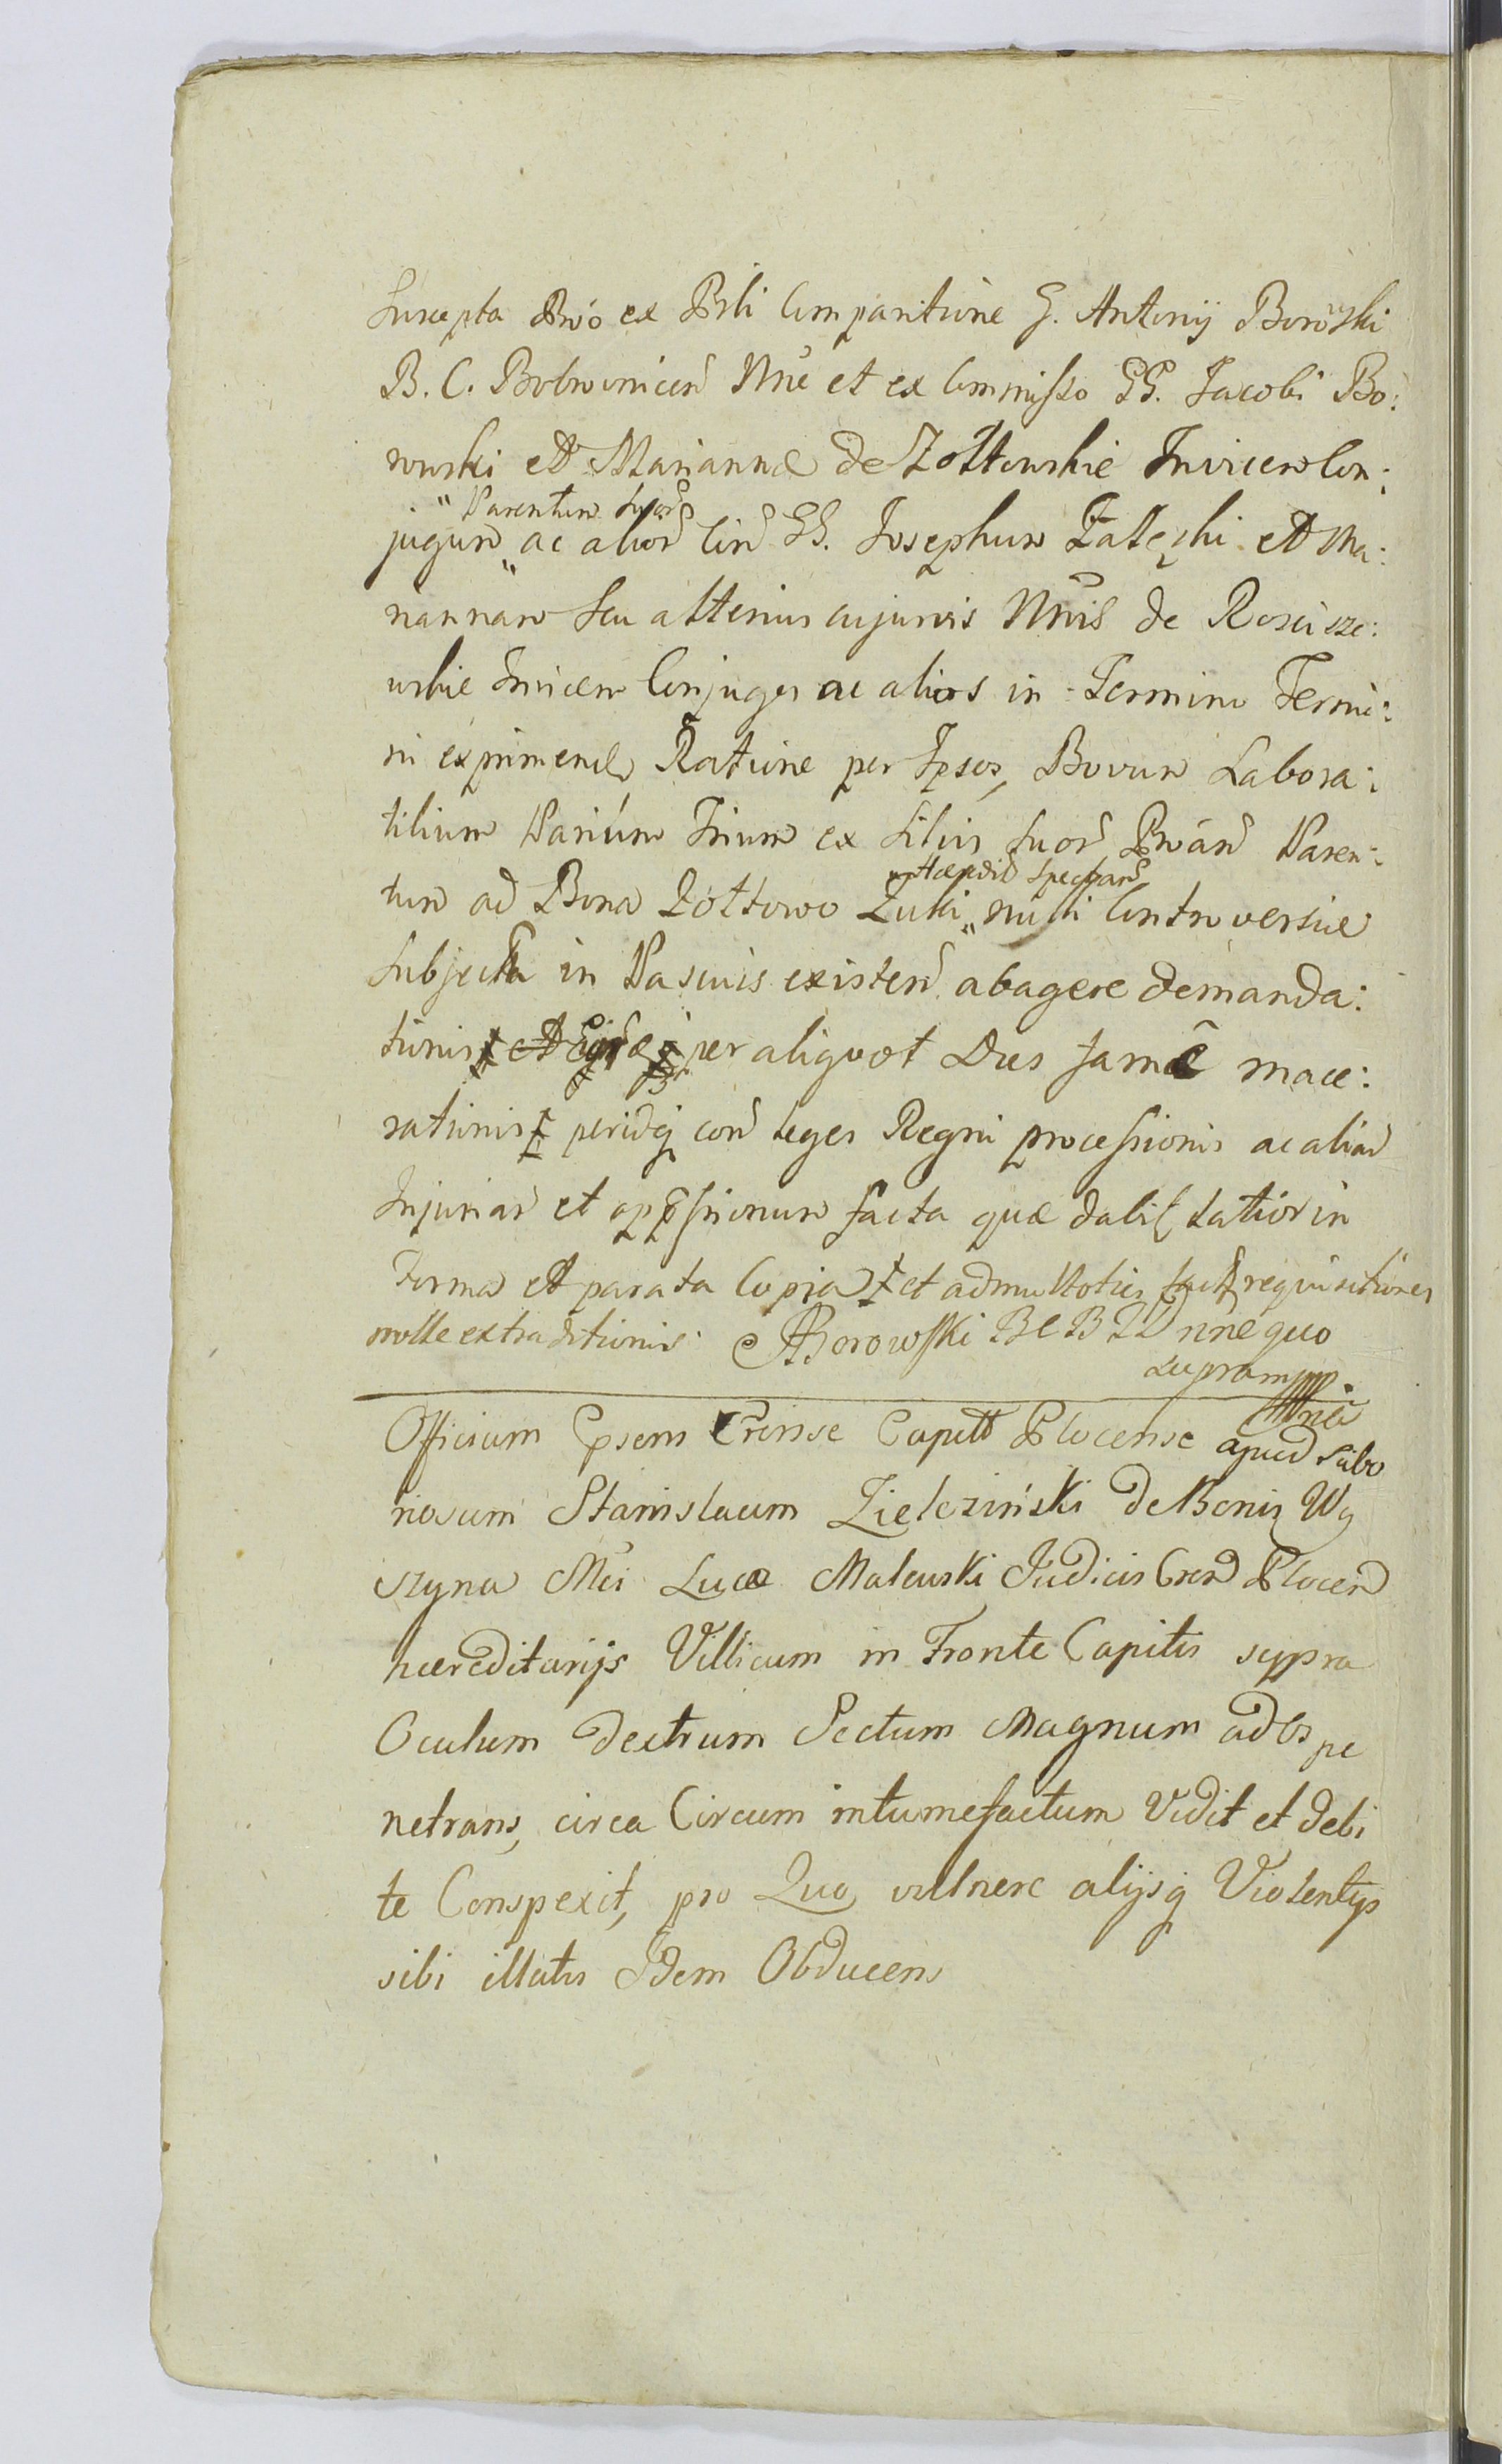 Suscepta Prńo ex Prli Comparitione G. Antonij Borowski
B. C. Bobrownicen Nne et ex Commisso GG. Jacobi Bo:
rowski et Mariannæ de Zołtowskie Invicem Con:
"Parentum suor
jugum „ ac alior Cin GG. Josephum Załęski et Ma:
riannam seu alterius cujusvis Nnis de Rosciszе:
wskie Invicem Conjuges ac alios in Termino Termi:
ni exprimend Ratione per Ipsos, Bovum Labora:
tilium Parium Trium ex Silvis suor Paren:
Hæredit spectan
tum ad Bona Zołtowo Żuki „ nulli Controversiæ
subjecta in Pascuis existen abagere demanda:
tionis et per aliquot Dies famê mace:
rationis peridq con leges Regni processionis ac aliar
Injuriar et oppssionum facta quæ dabit latior in
Forma et parata Copia et ad multoties fact requisitiones
nolle extraditionis. ABorowski BCB nne quo
supra mpp.
Officium Epsens Crense Capitt Plocense apud Labo
riosum Stanislaum Zieleziński de Bonis Wy
szyna Mci Lucæ Malewski Judicis Cren Plocen
hæreditarijs Villicum in Fronte Capitis suppra
Oculum dextrum Sectum Magnum ad Os pe
netrans, circa Circum intumefactum Vidit et debi
te Conspexit, pro Quo vulnere alijsq Violentijs
sibi illatis Idem Obducens